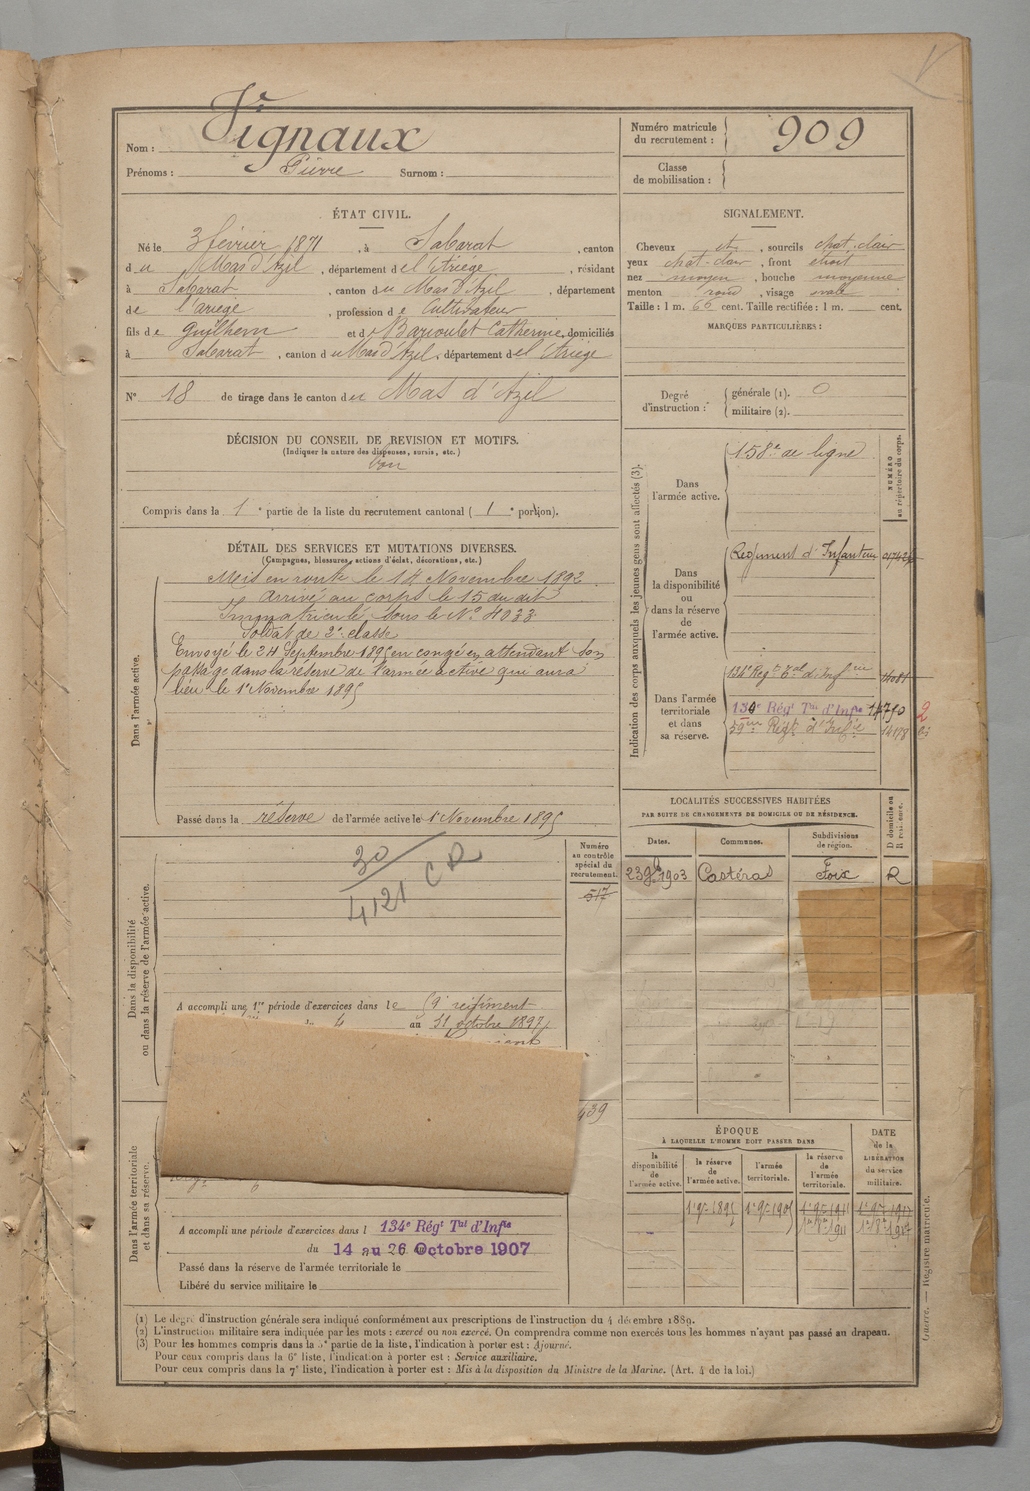 Nom : Vignaux
Prénoms : Pierre Surnom :
Numéro matricule du recrutement : 909
Classe de mobilisation :
ÉTAT CIVIL.
Né le 3 février 1871, à Sabarat, canton
du Mas d'Azil, département de l'Ariège, résidant
à Sabarat, canton du Mas d'Azil, département
de l'ariège, profession de Cultivateur
fils de Guilhem et de Catherine, domiciliés
à Sabarat, canton du Mas d'Azil, département de l'Ariège
N° 18 de tirage dans le canton du Mas d'Azil
SIGNALEMENT.
Cheveux et, sourcils chat. clair
yeux chat. clair, front étroit
nez moyen, bouche moyenne
menton rond, visage ovale
Taille : 1 m. 66 cent. Taille rectifiée : 1 m. cent.
MARQUES PARTICULIÈRES :
Degré d'instruction :
générale (1). 0
militaire (2).
DÉCISION DU CONSEIL DE REVISION ET MOTIFS.
(Indiquer la nature des dispenses, sursis, etc.)
bon
Compris dans la 1e partie de la liste du recrutement cantonal (1e portion).
DÉTAIL DES SERVICES ET MUTATIONS DIVERSES.
(Campagnes, blessures, actions d'éclat, décorations, etc.)
Dans l'armée active.
Mis en route le 14 Novembre 1892
Arrivé au corps le 15 du dit
Immatriculé sous le N° 4033
Soldat de 2e classe
Envoyé le 24 Septembre 1895 en congé en attendant son
passage dans la réserve de l'armée active qui aura
lieu le 1er Novembre 1895
Passé dans la réserve de l'armée active le 1er Novembre 1895
Indication des corps auxquels les jeunes gens sont affectés (3).
NUMÉRO au répertoire du corps.
Dans l'armée active.
158e de ligne
Dans la disponibilité ou dans la réserve de l'armée active.
Régiment d'Infanterie
Dans l'armée territoriale et dans sa réserve.
134e Régt Tal d'Infrie
134e Régt Tal d'Infie
59eme Régt d'Infie
LOCALITÉS SUCCESSIVES HABITÉES
PAR SUITE DE CHANGEMENTS DE DOMICILE OU DE RÉSIDENCE.
Dates. Communes. Subdivisions de région. D domicile ou R résidence.
23 9bre 1903 Castéras Foix R
Dans la disponibilité ou dans la réserve de l'armée active.
Numéro au contrôle spécial du recrutement.
517
30
4121 CR
A accompli une 1re période d'exercices dans le 59e régiment
du 4 au 31 octobre 1897
439
Dans l'armée territoriale et dans sa réserve.
A accompli une période d'exercices dans l 134e Régt Tal d'Infie
du 14 au 26 Octobre 1907
Passé dans la réserve de l'armée territoriale le
Libéré du service militaire le
ÉPOQUE
À LAQUELLE L'HOMME DOIT PASSER DANS
la disponibilité de l'armée active. la réserve de l'armée active. l'armée territoriale. la réserve de l'armée territoriale.
DATE de la LIBÉRATION du service militaire.
1er 9bre 1895 1er 9bre 1905 1er 9bre 1911 1er 9bre 1917
(1) Le degré d'instruction générale sera indiqué conformément aux prescriptions de l'instruction du 4 décembre 1889.
(2) L'instruction militaire sera indiquée par les mots : exercé ou non exercé. On comprendra comme non exercés tous les hommes n'ayant pas passé au drapeau.
(3) Pour les hommes compris dans la 5e partie de la liste, l'indication à porter est : Ajourné.
Pour ceux compris dans la 6e liste, l'indication à porter est : Service auxiliaire.
Pour ceux compris dans la 7e liste, l'indication à porter est : Mis à la disposition du Ministre de la Marine. (Art. 4 de la loi.)
Guerre. — Registre matricule.